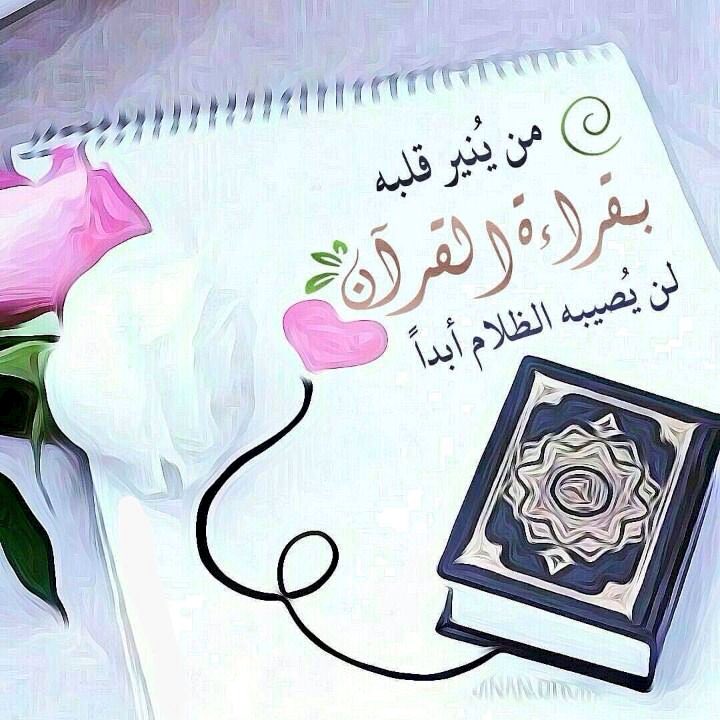 من يُنير قلبه
بقراءة القرآن
لن يُصيبه الظلام أبداً